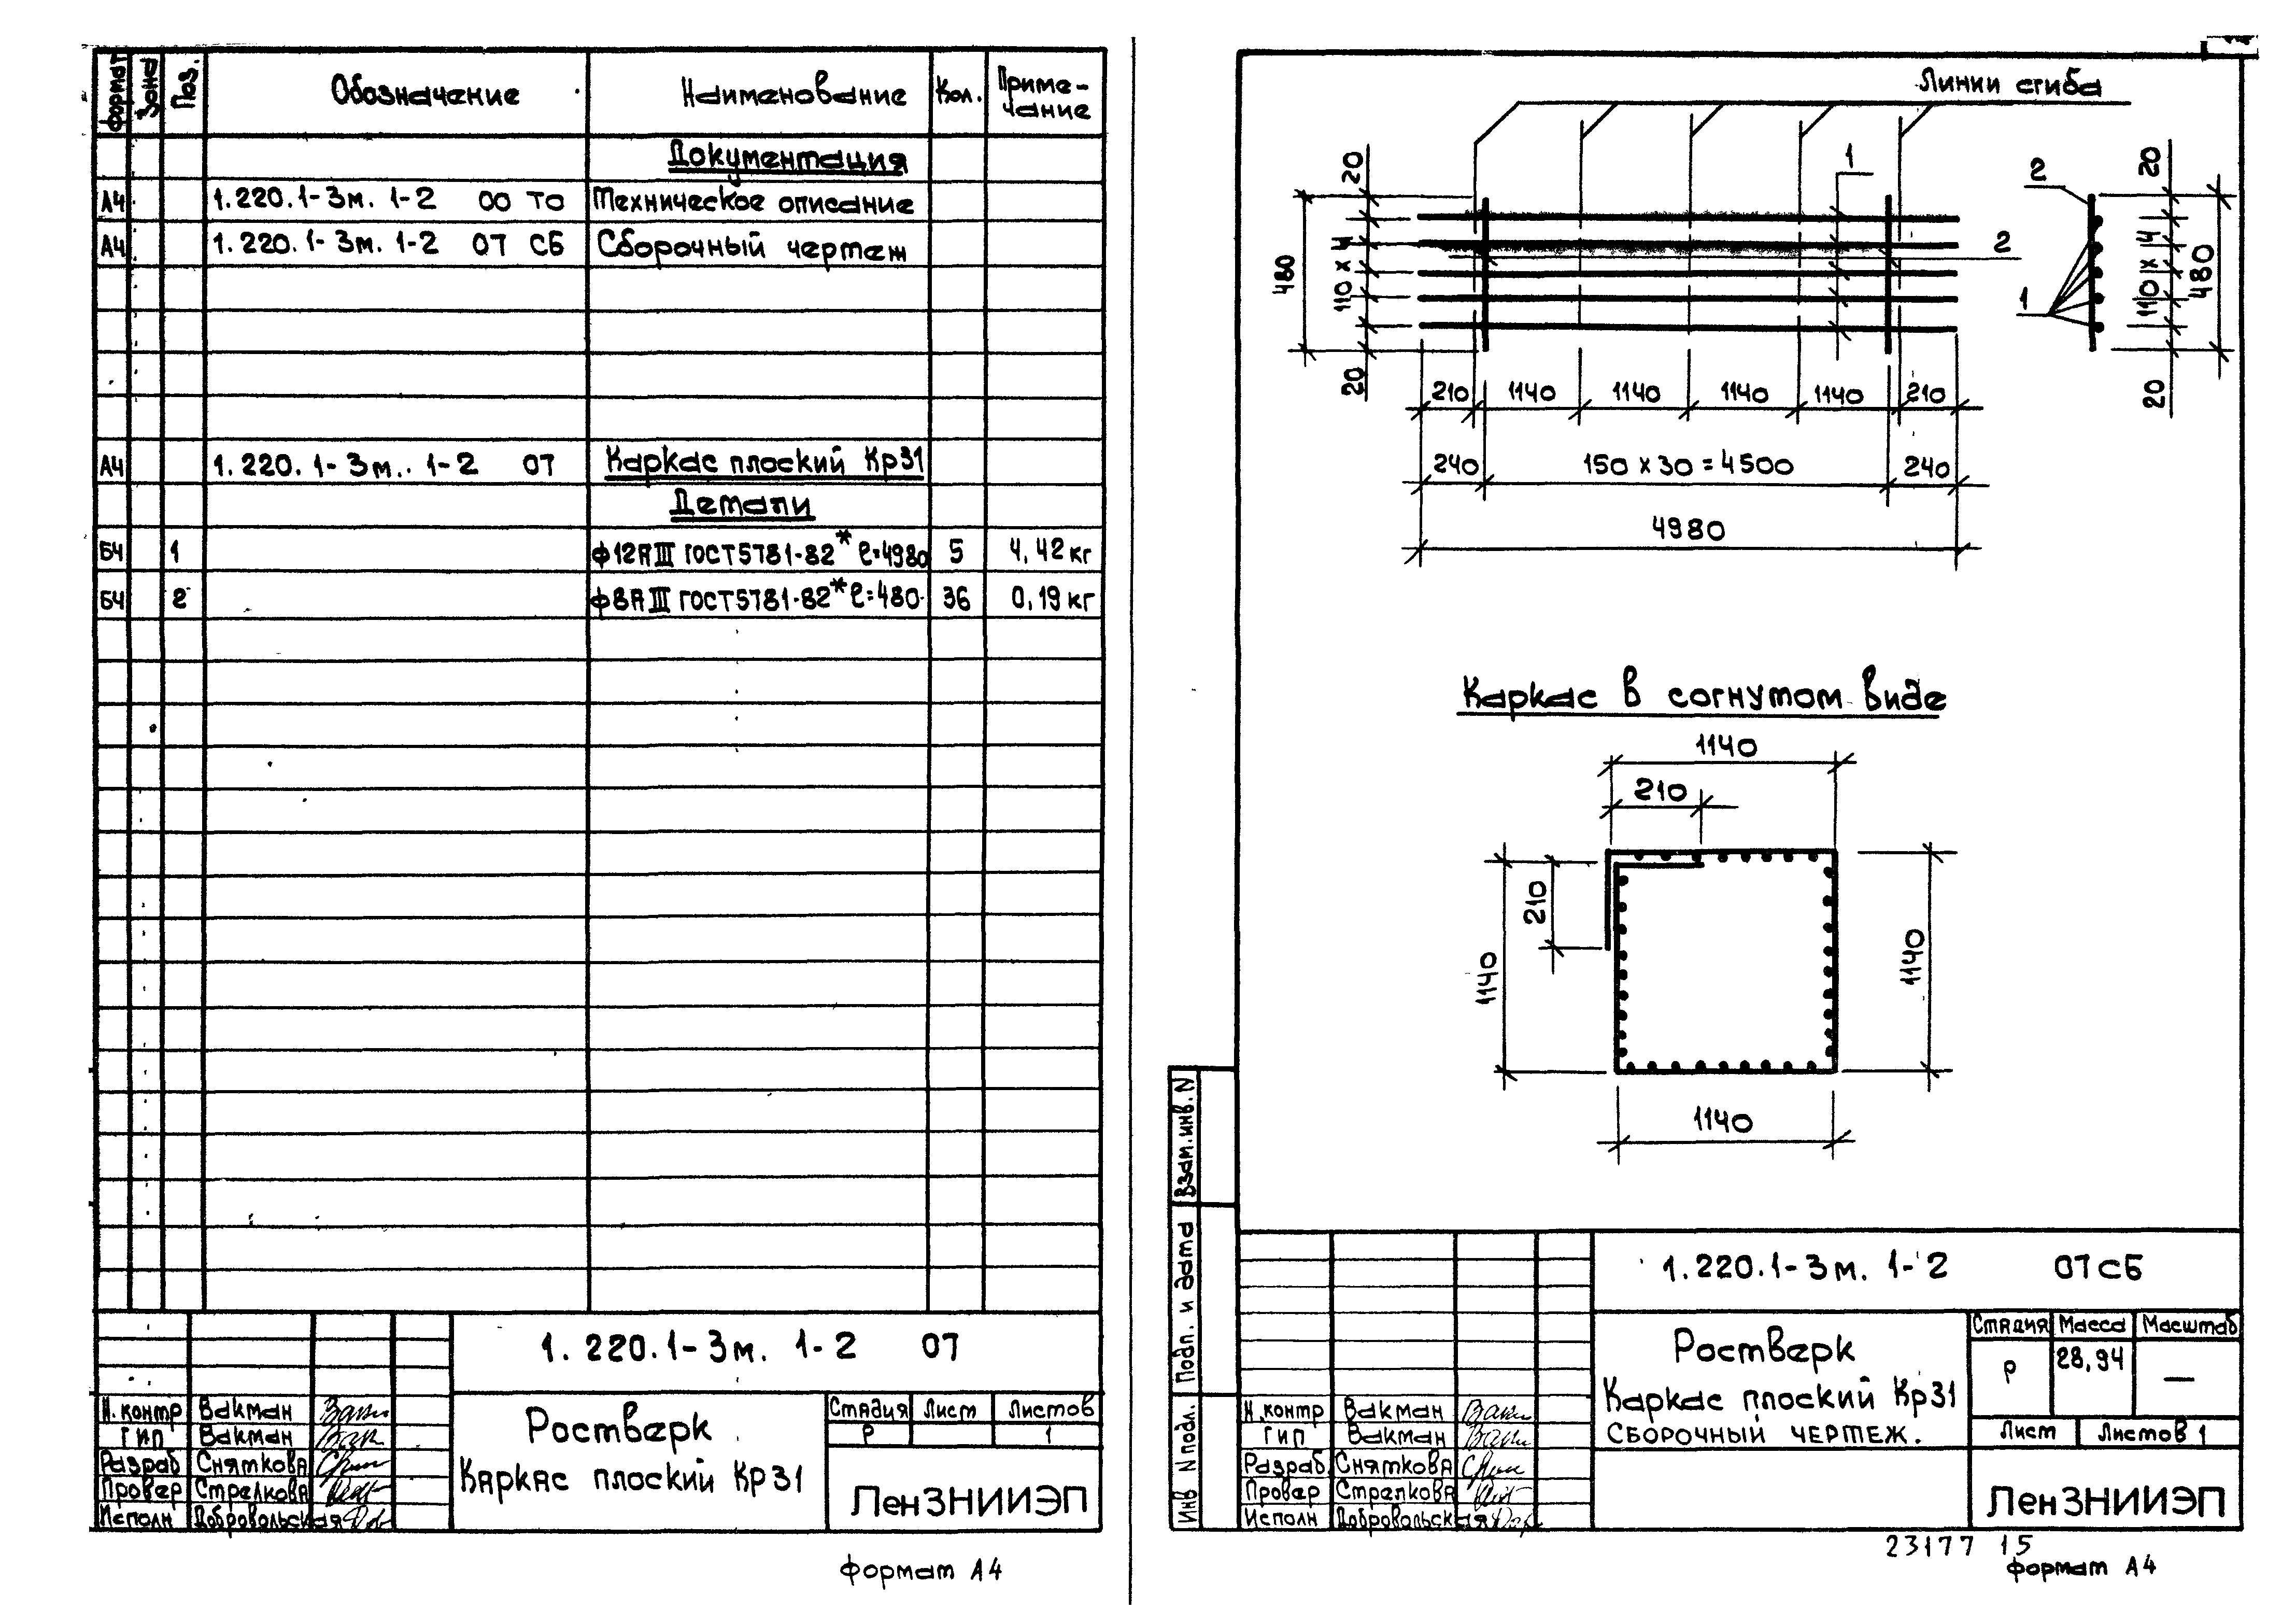 Формат Зона Поз. Обозначение Наименование Кол. Приме-
чание
Документация
А4 1.220.1-3м. 1-2 00 ТО Техническое описание
А4 1.220.1-3м. 1-2 07 СБ Сборочный чертеж
А4 1.220.1-3м. 1-2 07 Каркас плоский Кр31
Детали
БЧ 1 ф12АIII ГОСТ5781-82* ℓ=4980 5 4,42 кг
БЧ 2 ф8АIII ГОСТ5781-82* ℓ=480 36 0,19 кг
1.220.1-3м. 1-2 07
Н.контр Вакман
ГИП Вакман
Разраб Сняткова
Провер Стрелкова
Исполн Добровольская
Ростверк
Каркас плоский Кр31
Стадия Лист Листов
Р 1
ЛенЗНИИЭП
Формат А4
Линии сгиба
20
110 х 4
20
480
1
2
2
1
20
110 х 4
20
480
210 1140 1140 1140 1140 210
240 150 х 30 = 4500 240
4980
Каркас в согнутом виде
1140
210
210
1140
1140
1140
Взам.инв.N
Подп. и дата
Инв N подл.
1.220.1-3м. 1-2 07СБ
Н.контр Вакман
ГИП Вакман
Разраб. Сняткова
Провер Стрелкова
Исполн Добровольская
Ростверк
Каркас плоский Кр31
СБОРОЧНЫЙ ЧЕРТЕЖ.
Стадия Масса Масштаб
Р 28,94 —
Лист Листов 1
ЛенЗНИИЭП
23177 15
Формат А4